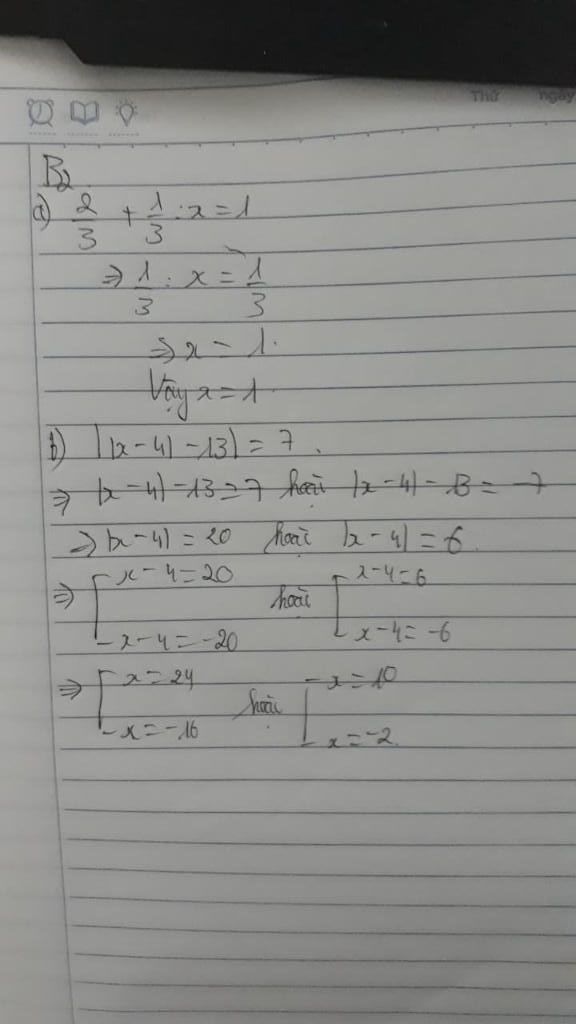 Thứ ngày
B2
a) 2/3 + 1/3 : x = 1
⇒ 1/3 : x = 1/3
⇒ x = 1.
Vậy x = 1
b) ||x - 4| - 13| = 7.
⇒ |x - 4| - 13 = 7 hoặc |x - 4| - 13 = -7
⇒ |x - 4| = 20 hoặc |x - 4| = 6
⇒ [ x - 4 = 20 hoặc [ x - 4 = 6
x - 4 = -20 x - 4 = -6
⇒ [ x = 24 hoặc [ x = 10
x = -16 x = -2.